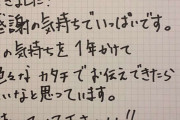 感謝の気持ちでいっぱいです。
の気持ちを1年かけて
々な カタチでお伝えできたら
いなと思っています。